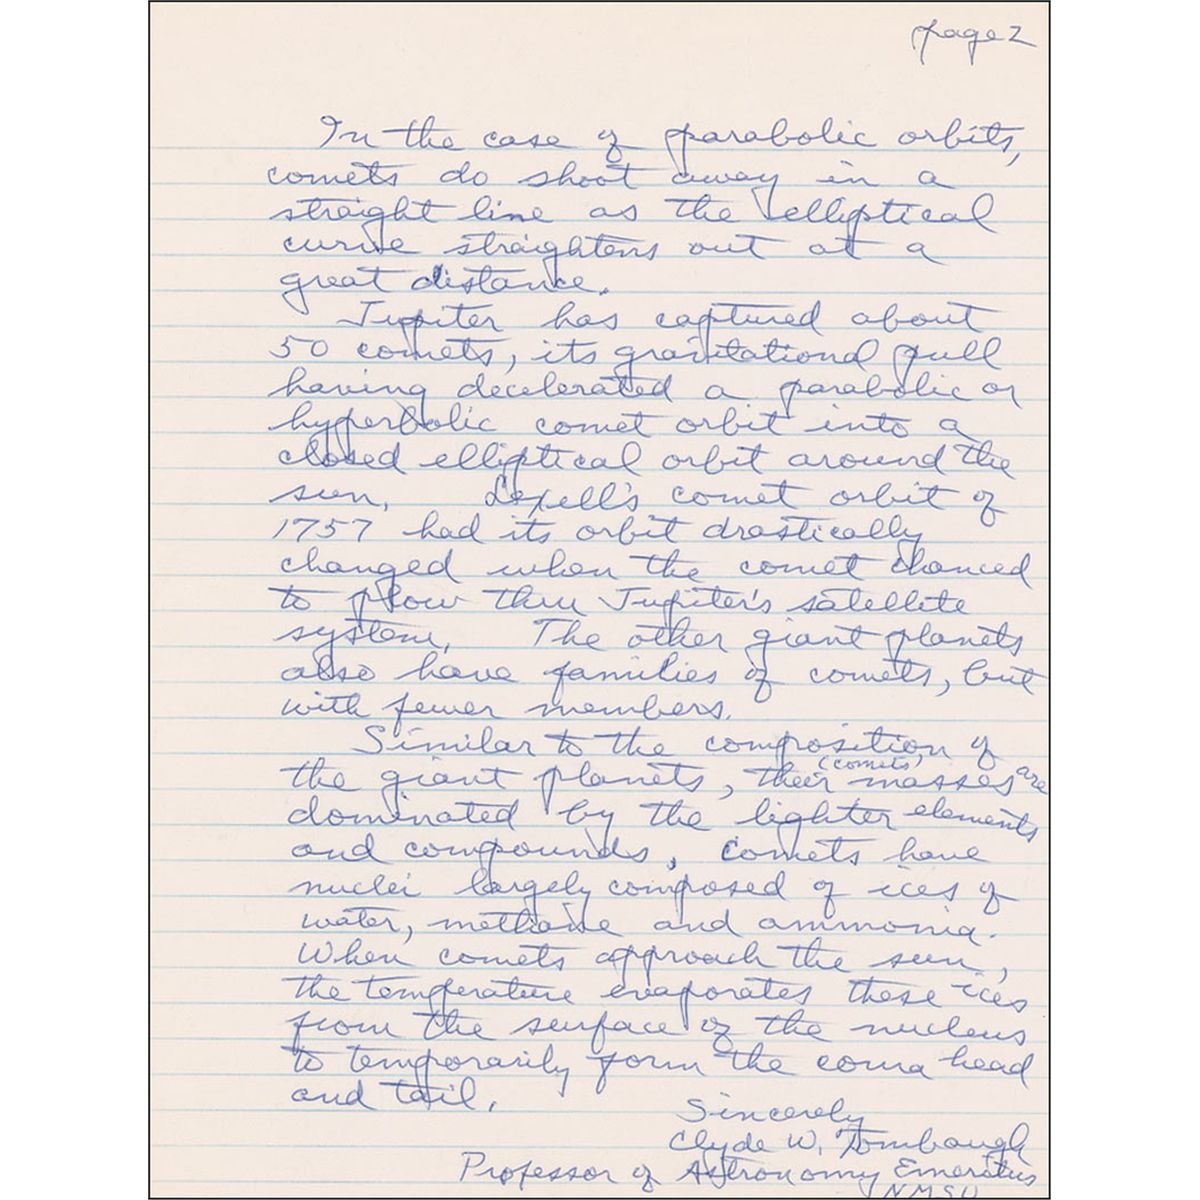 page 2
In the case of parabolic orbits,
comets do shoot away in a
straight line as the elliptical
curve straightens out at a
great distance.
Jupiter has captured about
50 comets, its gravitational pull
having decelerated a parabolic or
hyperbolic comet orbit into a
closed elliptical orbit around the
sun. Lexell's comet orbit of
1757 had its orbit drastically
changed when the comet chanced
to plow thru Jupiter's satellite
system. The other giant planets
also have families of comets, but
with fewer members.
Similar to the composition of
(comets')
the giant planets, their masses are
dominated by the lighter elements
and compounds, Comets have
nuclei largely composed of ices of
water, methane and ammonia.
When comets approach the sun,
the temperature evaporates these ices
from the surface of the nucleus
to temporarily form the coma head
and tail.
Sincerely
Clyde W. Tombaugh
Professor of Astronomy Emeritus
NMSU